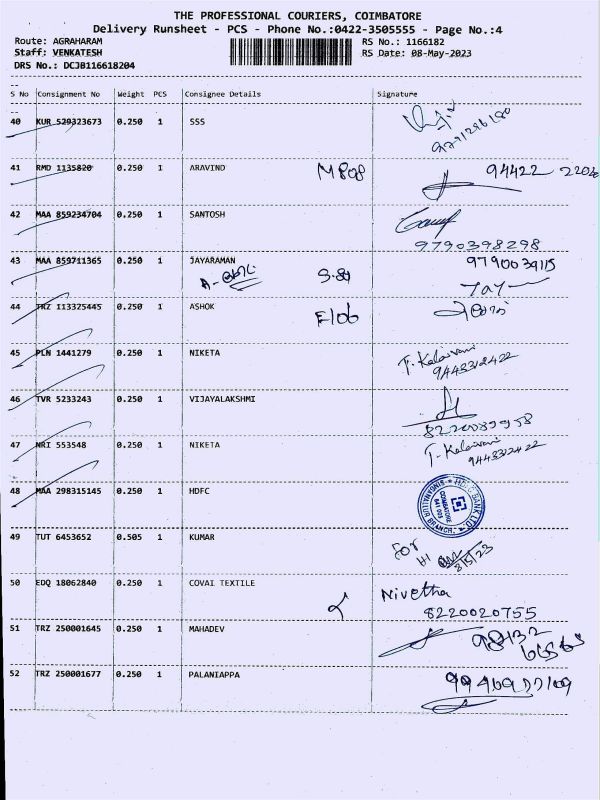 THE PROFESSIONAL COURIERS, COIMBATORE
Delivery Runsheet - PCS - Phone No.:0422-3505555 - Page No.:4
Route: AGRAHARAM RS No.: 1166182
Staff: VENKATESH RS Date: 08-May-2023
DRS No.: DCJB116618204
S No Consignment No Weight PCS Consignee Details Signature
40 KUR 529323673 0.250 1 SSS
41 RMD 1135820 0.250 1 ARAVIND
42 MAA 859234704 0.250 1 SANTOSH
9790398298
43 MAA 859711365 0.250 1 JAYARAMAN 9790039115
Jay
44 TRZ 113325445 0.250 1 ASHOK E106
45 PLN 1441279 0.250 1 NIKETA T. Kalaivani
9443312422
46 TVR 5233243 0.250 1 VIJAYALAKSHMI
8220089958
47 NRI 553548 0.250 1 NIKETA T. Kalaivani
9443312422
48 MAA 298315145 0.250 1 HDFC
49 TUT 6453652 0.505 1 KUMAR For
8/5/23
50 EDQ 18062840 0.250 1 COVAI TEXTILE Nivetha
8220020755
51 TRZ 250001645 0.250 1 MAHADEV
52 TRZ 250001677 0.250 1 PALANIAPPA